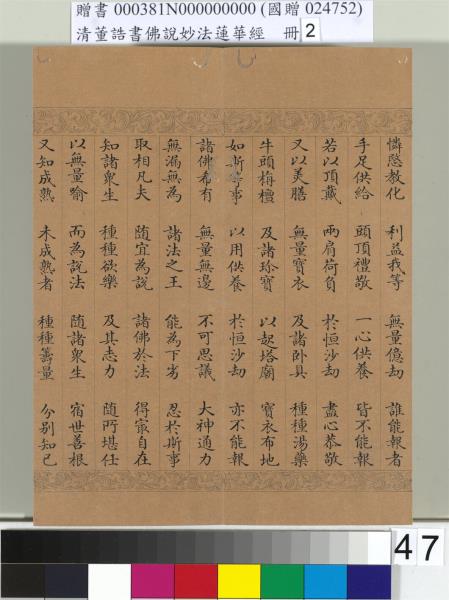 贈書 000381N000000000 (國贈 024752)
清董誥書佛說妙法蓮華經 冊 2
憐愍教化 利益我等 無量億劫 誰能報者
手足供給 頭頂禮敬 一心供養 皆不能報
若以頂戴 兩肩荷負 於恒沙劫 盡心恭敬
又以美膳 無量寶衣 及諸卧具 種種湯藥
牛頭栴檀 及諸珍寶 以起塔廟 寶衣布地
如斯等事 以用供養 於恒沙劫 亦不能報
諸佛希有 無量無邊 不可思議 大神通力
無漏無為 諸法之王 能為下劣 忍於斯事
取相凡夫 隨宜為說 諸佛於法 得最自在
知諸衆生 種種欲樂 及其志力 隨所堪任
以無量喻 而為說法 隨諸衆生 宿世善根
又知成熟 未成熟者 種種籌量 分别知已
47